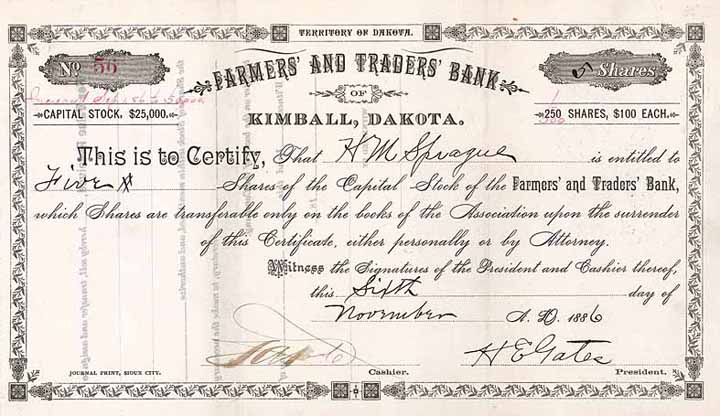 TERRITORY OF DAKOTA.
No. 55
5 Shares
FARMERS' AND TRADERS' BANK
OF
KIMBALL, DAKOTA.
CAPITAL STOCK. $25,000.
250 SHARES, $100 EACH.
This is to Certify, That H M Sprague is entitled to
Five Shares of the Capital Stock of the Farmers' and Traders' Bank,
which Shares are transferable only on the books of the Association upon the surrender
of this Certificate, either personally or by Attorney.
Witness the Signatures of the President and Cashier thereof,
this Sixth day of
November A. D. 1886
H E Gates
JOURNAL PRINT, SIOUX CITY.
Cashier.
President.